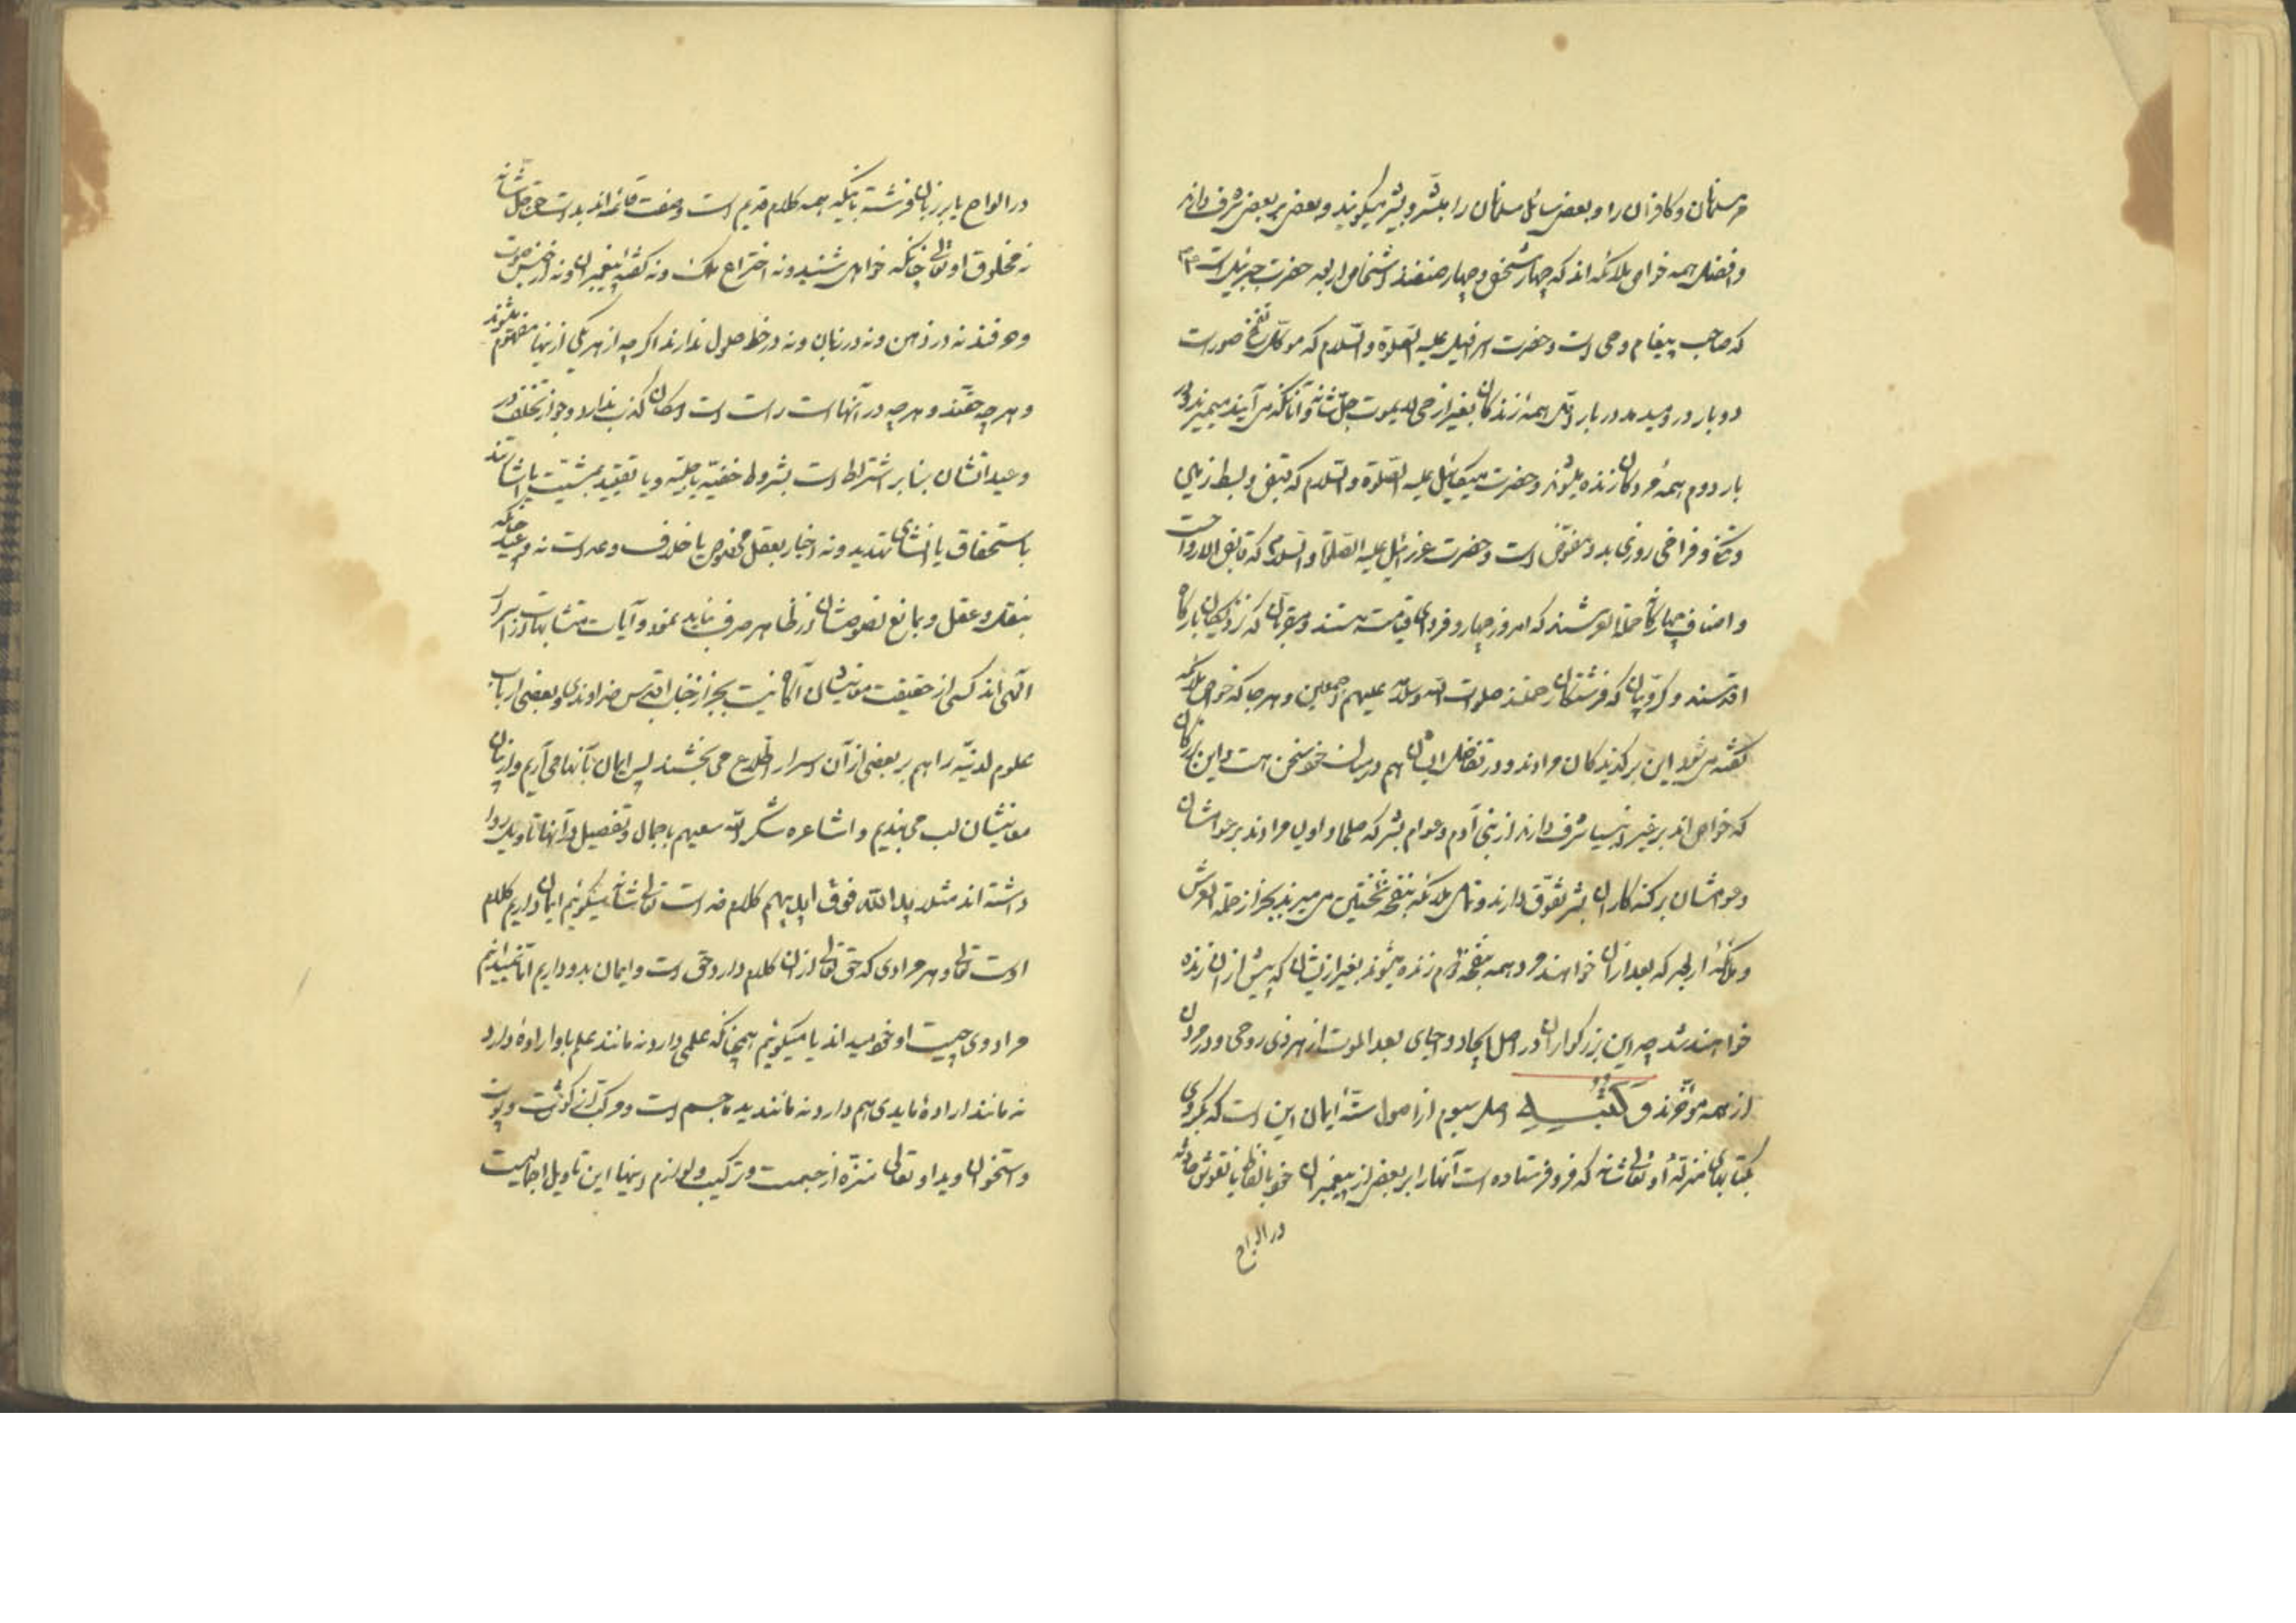 مر مسلمانان و کافران را و بعضی سائل مسلمانان را مبشر و بشیر میگویند و بعضی بر بعضی شرف دارند
و افضل همه خواص ملائکه اند که چهار شخص و چهار صنفند اشخاص اربعه حضرت جبرئیل است
که صاحب پیغام وحی است و حضرت اسرافیل علیه الصلوة والسلام که موکل نفخ صور است
دو بار در و میدمد در بار اول همهٔ زندگان بغیر از حی لا یموت جل شانه و آنانکه می آیند میمیرند و در
بار دوم همهٔ مردگان زنده میشوند و حضرت میکائیل علیه الصلوة والسلام که قبض و بسط رزق
و تنگی و فراخی روزی بدو مفوض است و حضرت عزرائیل علیه الصلوة والسلام که قابض الارواح است
و اصناف چهارگانه حملة العرشند که امروز چهار و فردای قیامت هشتند و مقربان که نزدیکان بارگاه
اقدسند و کروبیان که فرشتگان رحمتند صلوات الله وسلامه علیهم اجمعین و هر جا که خواص ملائکه
گفته می شود این برگزیدگان مرادند و در تفاضل ایشان هم در میان خود سخن هست و این بزرگان
که خواص اند بر غیر انبیا شرف دارند از بنی آدم و عوام بشر که صلحا و اولیا مرادند بر عوامشان
و عوامشان بر گنه کاران بشر تفوق دارند و تمامی ملائکه بنفخهٔ نخستین می میرند بجز از حملة العرش
و ملائکهٔ اربعه که بعد ازان خواهند مرد و همه بنفخهٔ دوم زنده میشوند بغیر ازیشان که پیش از ان زنده
خواهند شد چه این بزرگواران در اصل ایجاد و احیای بعد الموت از هر ذی روحی و در مردن
از همه مؤخرند و کتبه اصل سیوم از اصول ستهٔ ایمان این است که بگروی
بکتابهای منزلهٔ او تعالی شانه که فرو فرستاده است آنها را بر بعضی از پیغمبران خود بالفاظ یا نقوش حادثه
در الواح
در الواح یا بر زبان فرشته بآنکه همه کلام قدیم است و صفت قائمه اند بذات حق جل شانه
نه مخلوق او تعالی چنانکه خواهی شنید و نه اختراع ملک و نه گفتهٔ پیغمبران و نه از جنس صوت
و حرفند نه در ذهن و نه در زبان و نه در خط حلول ندارند اگر چه از هر یکی ازینها مفهوم میشوند
و هر چه حقند و هر چه در آنها است راست است و امکان کذب ندارد و جواز تخلف در
وعیداتشان بنابر اشتراط است بشروط خفیه یا جلیه و یا تقیید بمشیت یا
باستحقاق یا انشای تهدید و نه اخبار بعقل محض یا خلاف وعد است نه وعید چنانکه
بنقل و عقل و بی مانع نصوصشان از ظاهر صرف نباید نمود و آیات متشابهات از اسرار
الهی اند کسی از حقیقت معانیشان آگاه نیست بجز از جناب اقدس خداوندی و بعضی ارباب
علوم لدنیه را هم بر بعضی از آن اسرار اطلاع می بخشند پس ایمان بآنها می آریم و از بیان
معانیشان لب می بندیم و اشاعره شکر الله سعیهم باجمال و تفصیل در آنها تاویل روا
داشته اند مثلا ید الله فوق ایدیهم کلام خداست تعالی شانه میگوئیم ایمان داریم کلام
اوست تعالی و هر مرادی که حق تعالی از ان کلام دارد حق است و ایمان بدو داریم اما نمیدانیم
مراد وی چیست او خود میداند یا میگوئیم همچنانکه علمی دارد نه مانند علم ما و ارادهٔ دارد
نه مانند ارادهٔ ما یدی هم دارد نه مانند ید ما جسم است و مرکب از گوشت و پوست
و استخوان و ید او تعالی منزه از جسمیت و ترکیب و لوازم اینها این تاویل اجمالیست